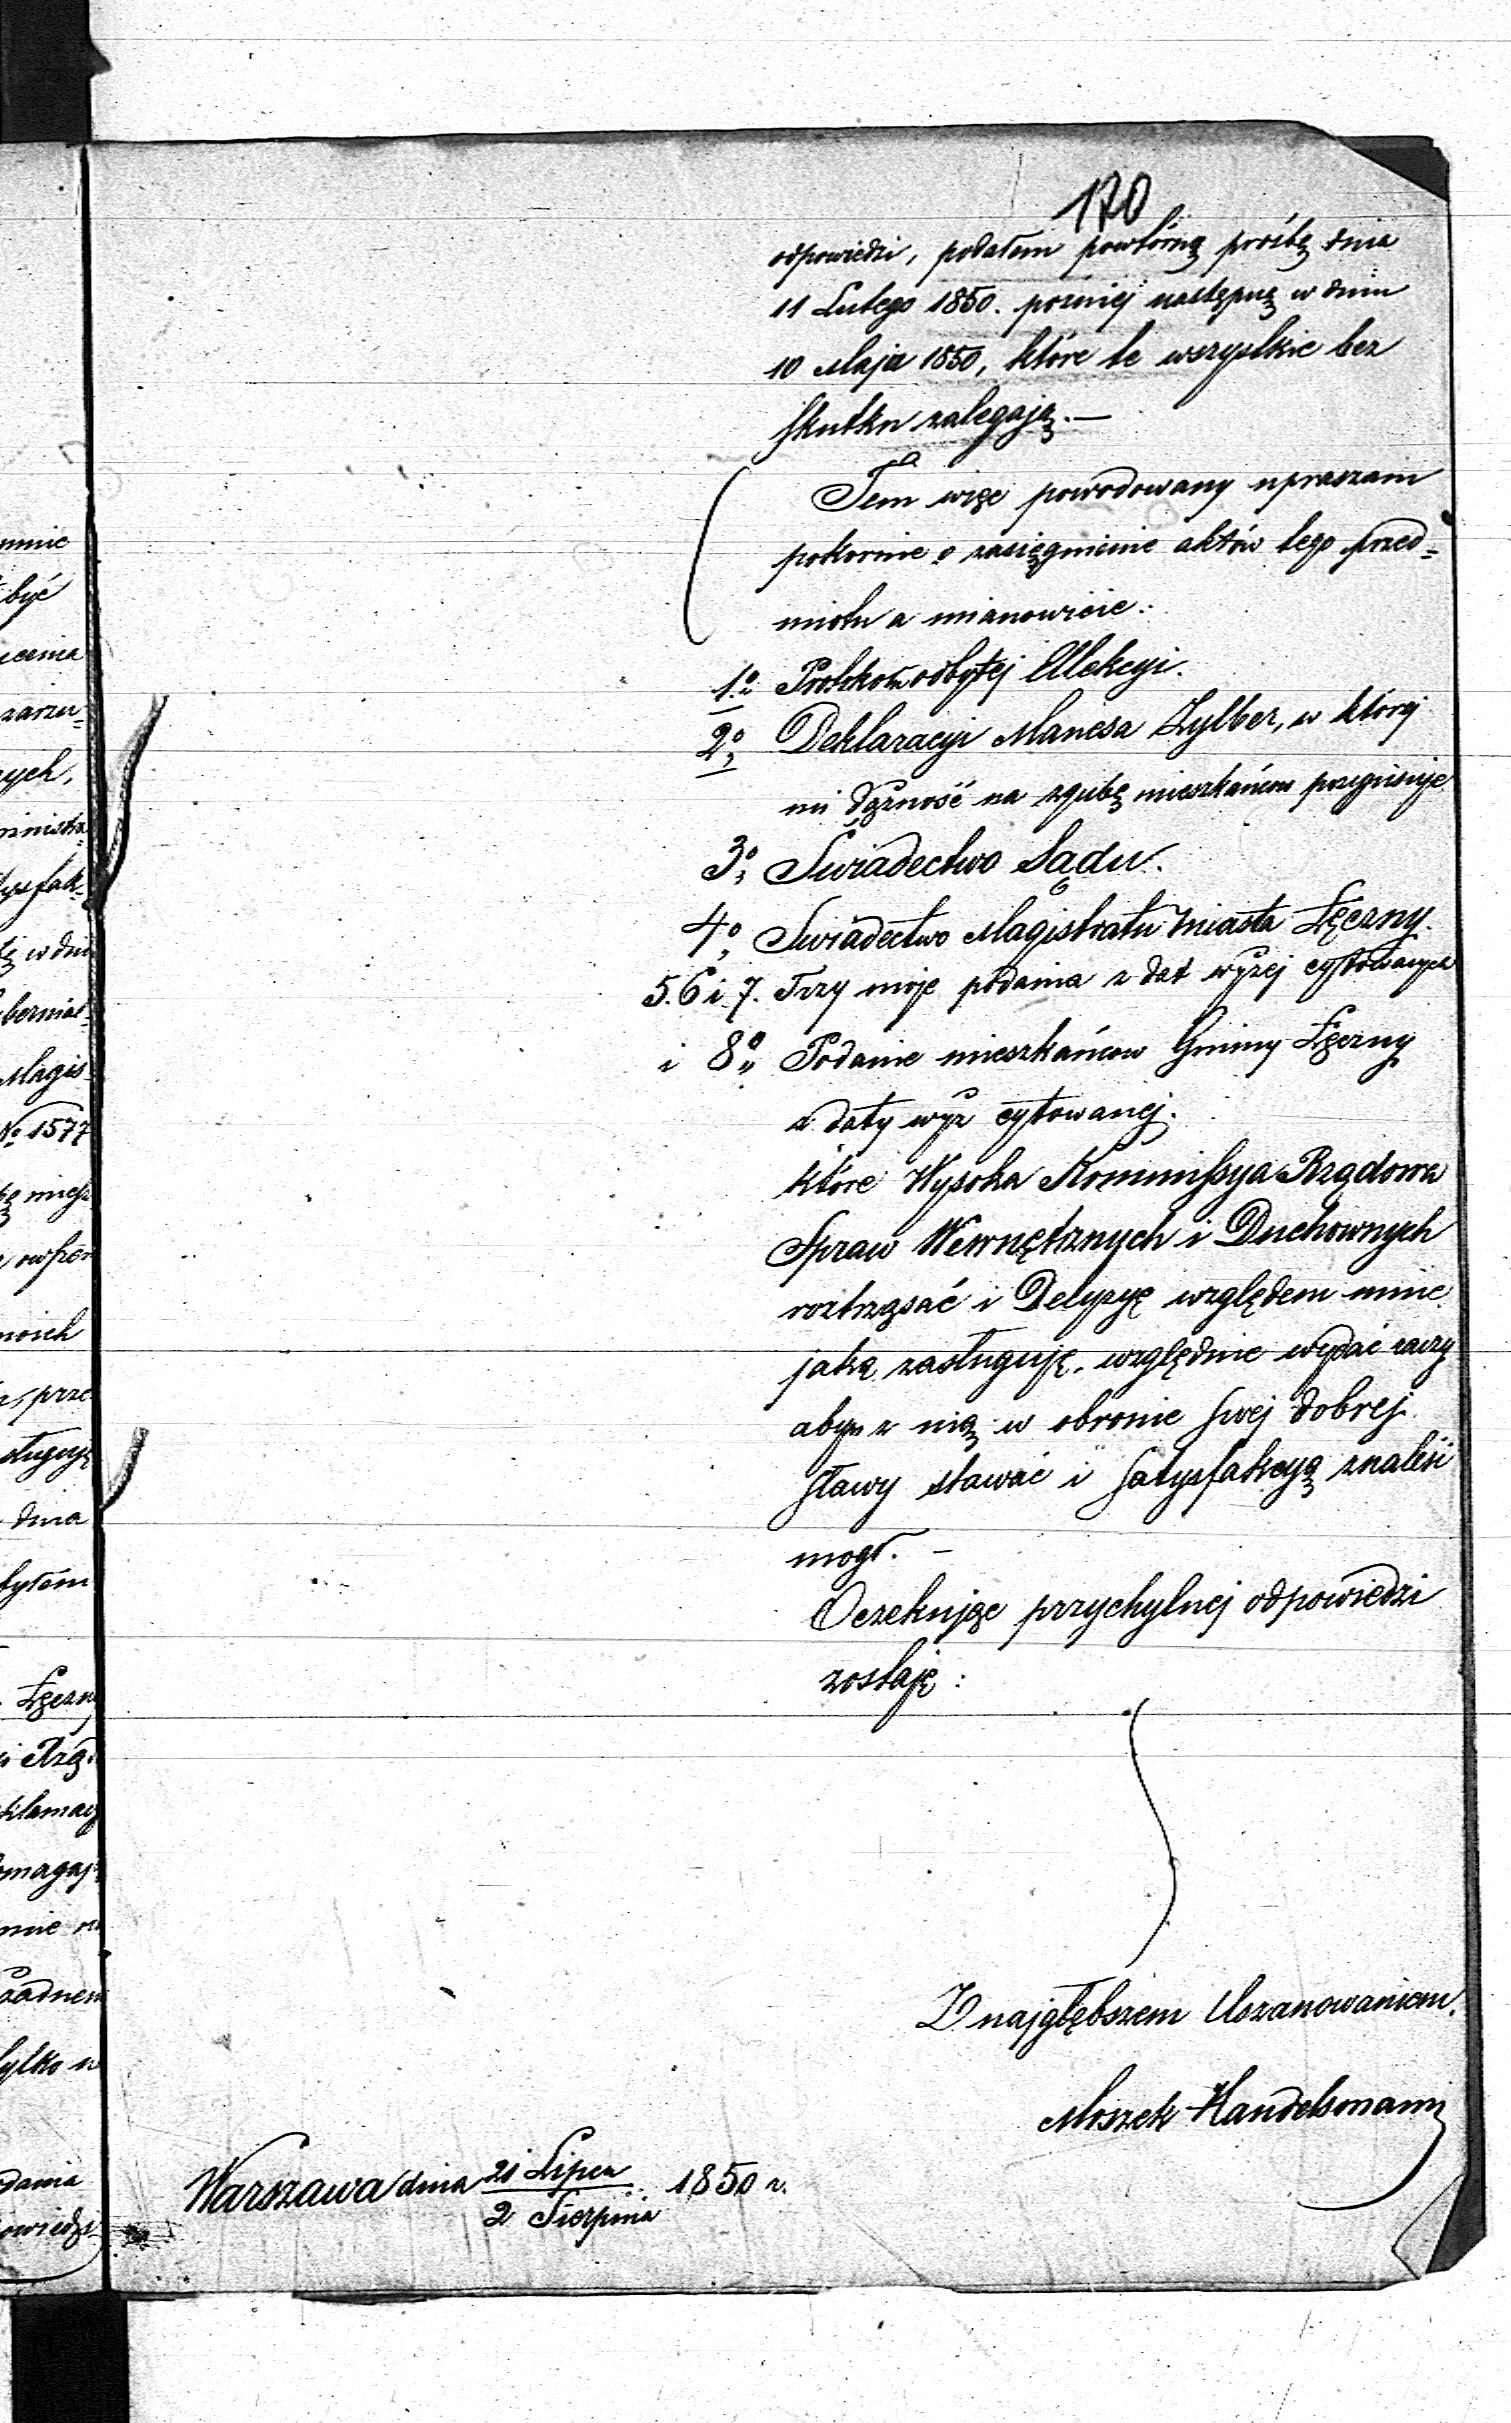 170
odpowiedzi, podałem powtórną prośbę dnia
11 Lutego 1850. pozniej następną w dniu
10 Maja 1850, które te wszystkie bez
skutku zalegają. —
Tem więc powodowany upraszam
pokornie o zasięgnienie aktów tego przed=
miotu a mianowicie:
1o Protokołu odbytej Elekcyi.
2o Deklaracyi Manesa Zylber, w której
mi dążność na zgubę mieszkańcow przypisuje
3o Swiadectwo Sądu.
4o Swiadectwo Magistratu miasta Łęczny.
5. 6 i 7. Trzy moje podania z dat wyżej cytowanych
i 8o Podanie mieszkańcow Gminy Łęczny
z daty wyż cytowanej.
które Wysoka Kommissya Rządowa
Spraw Wewnętrznych i Duchownych
roztrząsać i Decyzyę względem mnie
jaką zasługuję, względnie wydać raczy
abym z nią w obronie swej dobrej
sławy stawać i satysfakcyą znaleść
mogł. —
Oczekując przychylnej odpowiedzi
zostaję:
Z najgłębszem Uszanowaniem.
Moszek Handelsmann
Warszawa dnia 21 Lipca / 2 Sierpnia 1850 r.
mnie
być
zarzu=
w dni
Magis=
No 1577
moich
dnia
byłem
Łęczn
tylko w